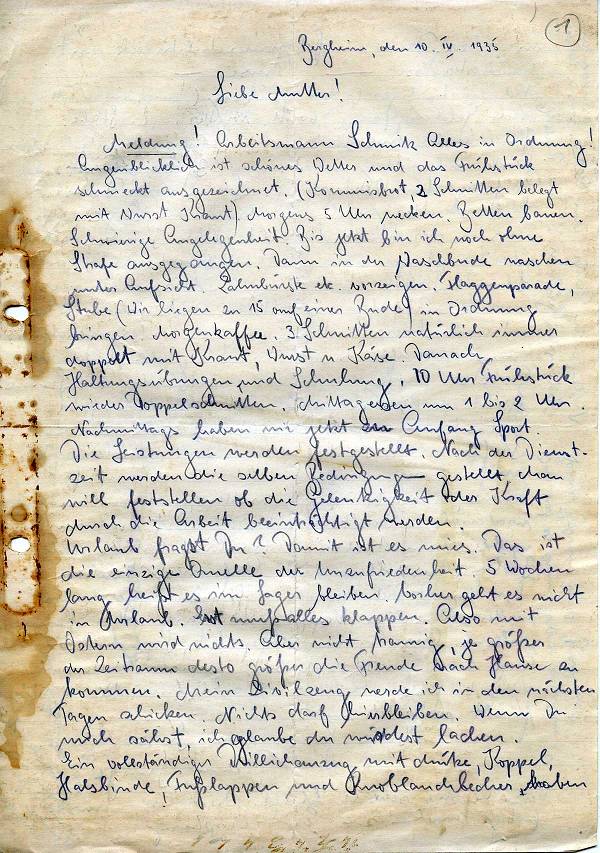 1
Bergheim, den 10. IV. 1935
Liebe Mutter!
Meldung! Arbeitsmann Schmitz Alles in Ordnung!
Augenblicklich ist schönes Wetter und das Frühstück
schmeckt ausgezeichnet. (Kommisbrot, 2 Schnitten belegt
mit Wurst Kraut) Morgens 5 Uhr wecken. Betten bauen.
Schwierige Angelegenheit. Bis jetzt bin ich noch ohne
Strafe ausgegangen. Dann in der Waschbude waschen
unter Aufsicht. Zahnbürste etc. vorzeigen. Flaggenparade,
Stube (Wir liegen zu 15 auf einer Bude) in Ordnung
bringen. Morgenkaffee. 3 Schnitten natürlich immer
doppelt mit Kraut, Wurst u Käse. Danach
Haltungsübungen und Schulung. 10 Uhr Frühstück
wieder Doppelschnitten. Mittagessen um 1 bis 2 Uhr.
Nachmittags haben wir jetzt zu Anfang Sport.
Die Leistungen werden festgestellt. Nach der Dienst-
zeit werden die selben Bedingungen gestellt. Man
will feststellen ob die Gelenkigkeit oder Kraft
durch die Arbeit beeinträchtigt werden.
Urlaub fragst Du? Damit ist es mies. Das ist
die einzige Quelle der Unzufriedenheit. 5 Wochen
lang heißt es im Lager bleiben. Vorher geht es nicht
in Urlaub. Erst muß alles klappen. Also mit
Ostern wird nichts. Aber nicht traurig, je größer
der Zeitraum desto größer die Freude nach Hause zu
kommen. Mein Zivilzeug werde ich in den nächsten
Tagen schicken. Nichts darf hierbleiben. Wenn Du
mich sähst, ich glaube du würdest lachen.
Ein vollständiger Drillichanzug mit Mütze, Koppel,
Halsbinde, Fußlappen und Knoblandbecher haben